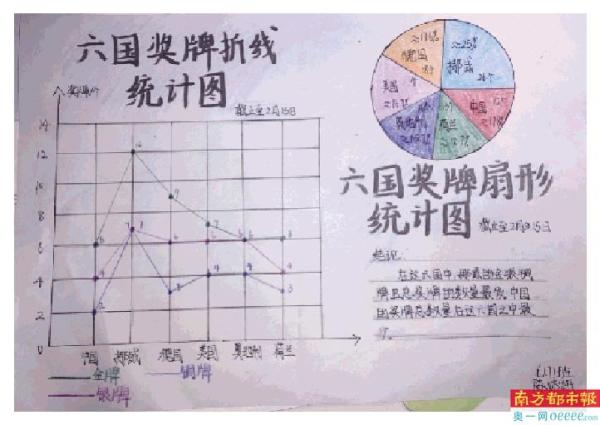 六国奖牌折线
统计图
截止至2月15日
14
12
10
8
6
4
2
0
中国 挪威 德国 美国 奥地利 荷兰
金牌 铜牌
银牌
德国
挪威
美国
中国
荷兰
六国奖牌扇形
统计图
截止至2月15日
在这六国中,挪威的金银铜
牌且总奖牌的数量最多,中国
的奖牌总数量在这六国之中最
南方都市報
奥一网oeeee.com